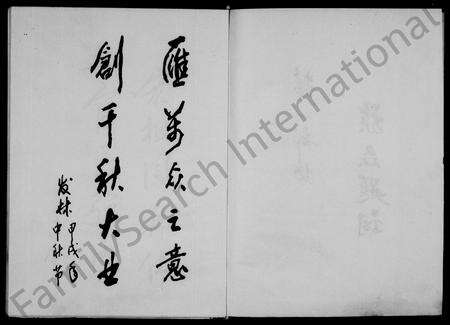 匯萬众之意
創千秋大业
发林甲戌年
中秋节
FamilySearch International